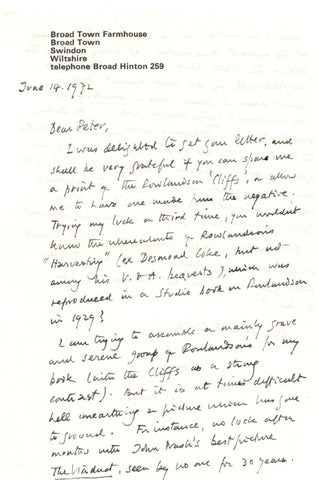 Broad Town Farmhouse
Broad Town
Swindon
Wiltshire
telephone Broad Hinton 259
June 14. 1972
Dear Peter,
I was delighted to get your letter, and
shall be very grateful if you can spare me
a print of the Rowlandson 'Cliffs', or allow
me to have one made from the negative.
Trying my luck a third time, you wouldn't
know the whereabouts of Rowlandson's
"Harvesting" (ex Desmond Coke, but not
among his V. & A. bequests), which was
reproduced in a Studio book on Rowlandson
in 1929?
I am trying to assemble a mainly grave
and serene group of Rowlandsons for my
book (with the Cliffs as a strong
contrast). But it is at times difficult
hell unearthing a picture which has gone
to ground. For instance, no luck after
months with John Nash's best picture
The Viaduct, seen by no one for 30 years.